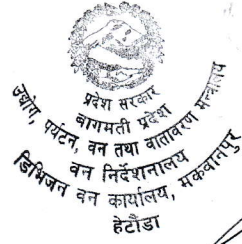 प्रदेश सरकार
बागमती प्रदेश
उद्योग, पर्यटन, वन तथा वातावरण मन्त्रालय
वन निर्देशनालय
डिभिजन वन कार्यालय, मकवानपुर
हेटौंडा